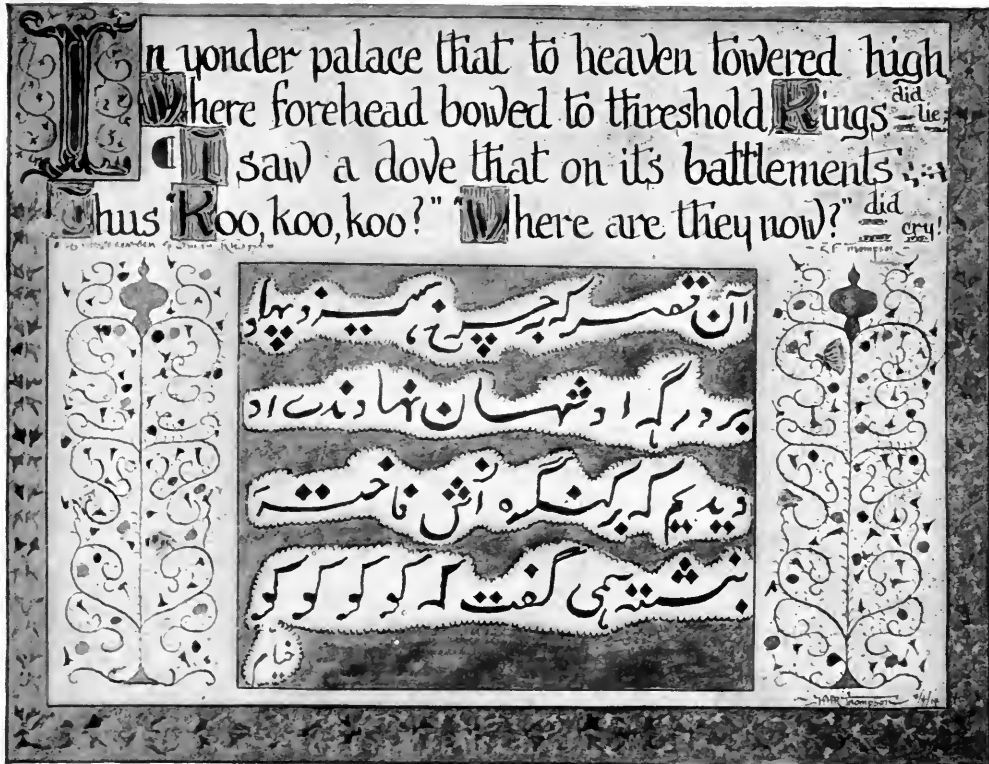 In yonder palace that to heaven towered high
Where forehead bowed to threshold, Kings did lie;
¶ I saw a dove that on its battlements
Thus "Koo, koo, koo?" "Where are they now?" did cry!
E F Thompson
آن قصر که بر چرخ همیزد پهلو
بر درگه او شهان نهادندے او
دیدیم که بر کنگره اش فاختهَ
بنشسته همی گفت که کو کو کو کو
خیام
Thompson